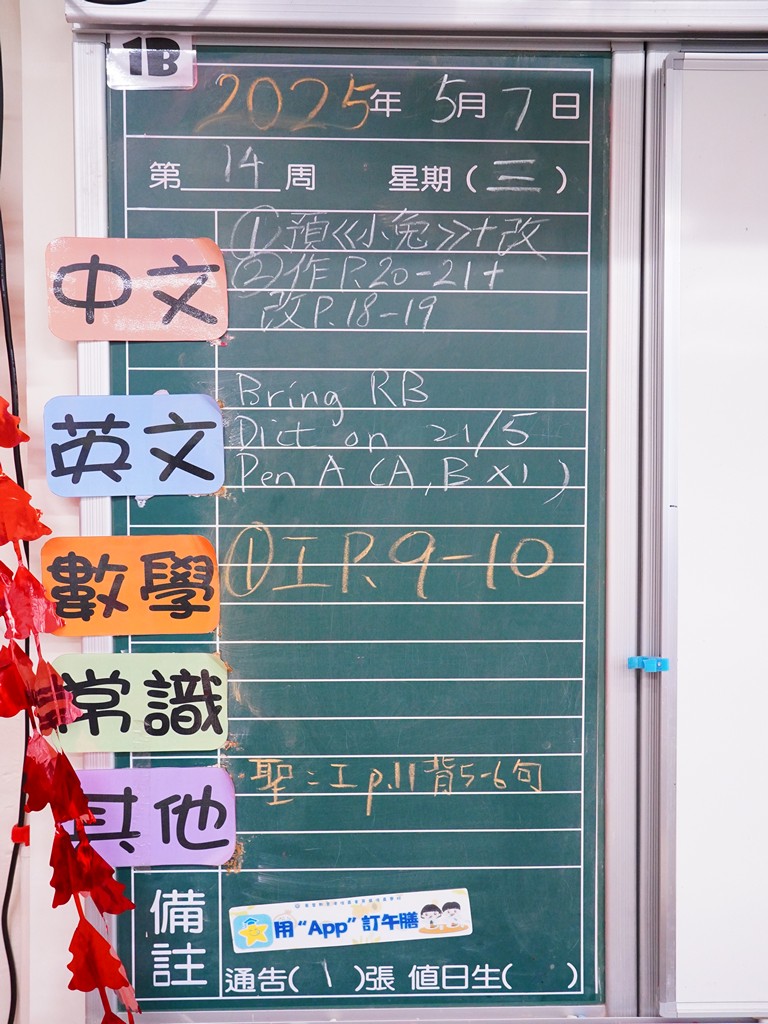 1B
2025年 5月7日
第14周 星期(三)
中文
①預《小兔》+改
②作P.20-21+
改P.18-19
英文
Bring RB
Dict on 21/5
Pen A (A,B×1)
數學
①工P.9-10
常識
其他
聖:工p.11背5-6句
備註
用“App”訂午膳
通告(1)張 值日生( )